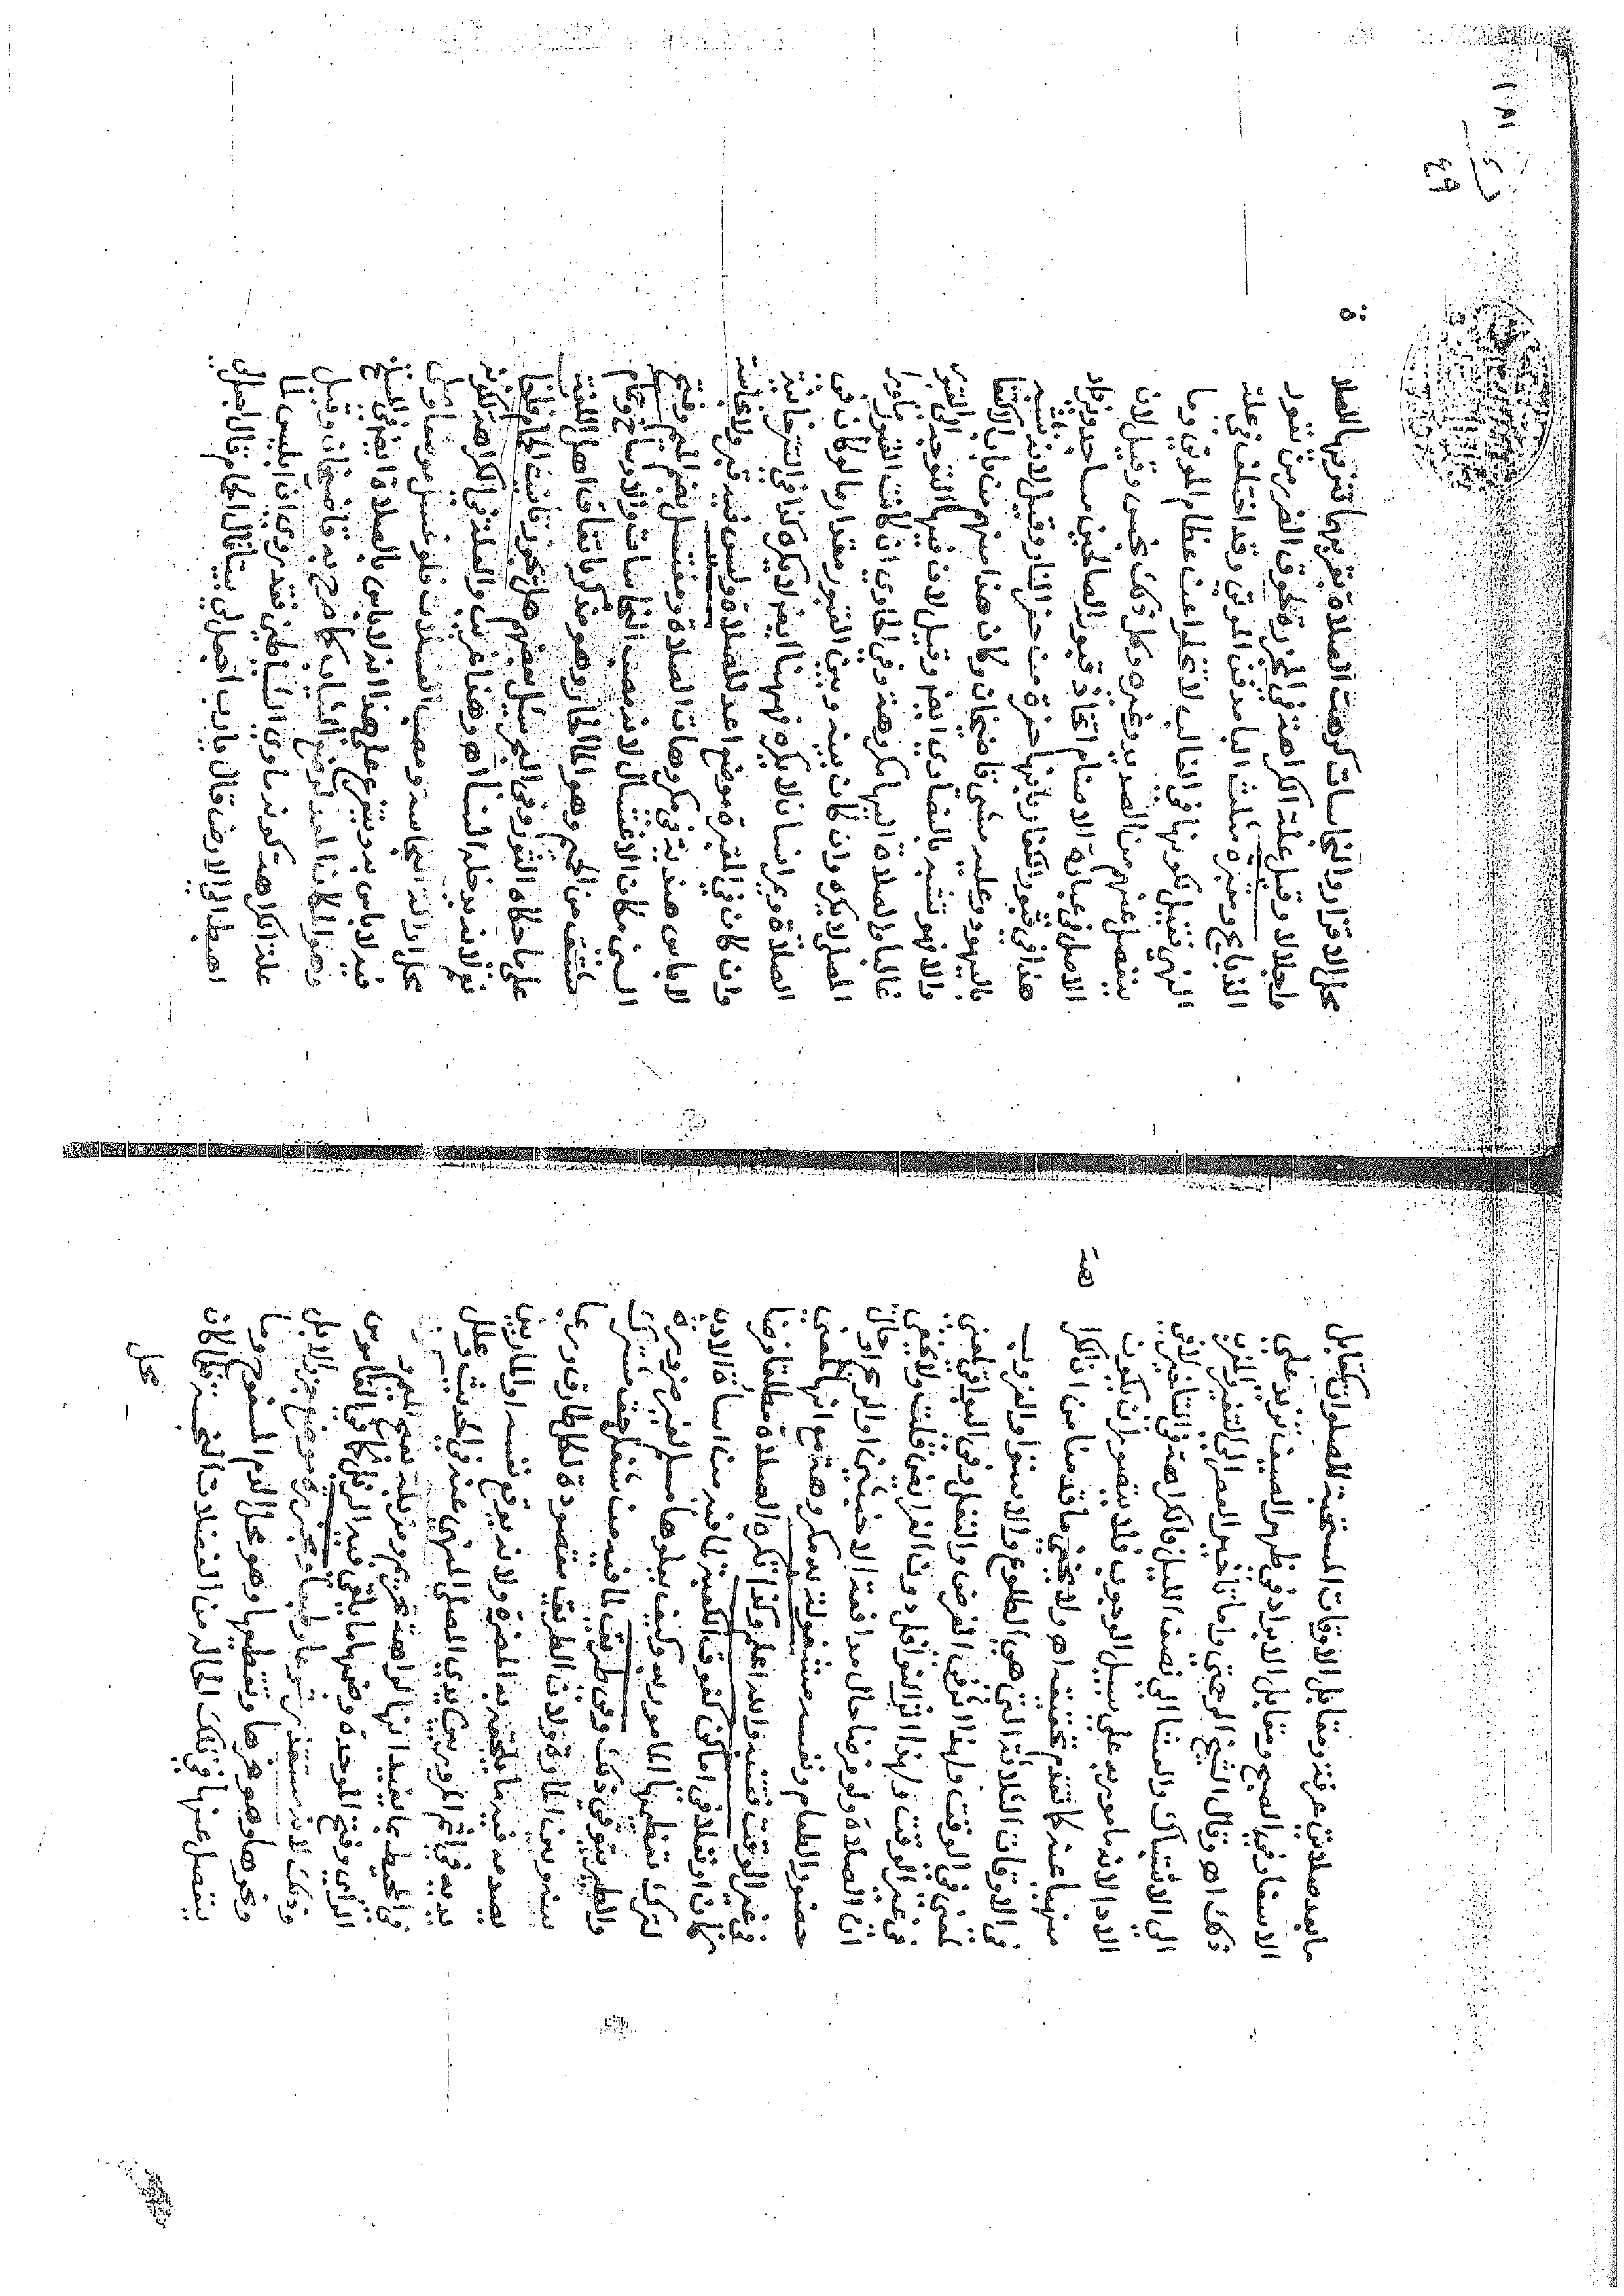 ما بعد صلاتي عرفة ومقابل الاوقات المستحبة للصلوات كمقابل
الاسفار في الصبح ومقابل الابراد في ظهر الصيف تزيد علي
ذلك اهـ وقال الشيخ الرحمتي واما تاخير العصر الى التغير والمغرب
الى الاشتباك والعشا الى نصف الليل فالكراهة في التاخير لا في
الادا لانه مامور به علي سبيل الوجوب فلا يتصور ان يكون
منهيا عنه كما تقدم تحقيقه اهـ ولا يخفي ما قدمنا من ان الكرا هة
في الاوقات الثلاثة التي هي الطلوع والاستوا والغروب
لمعنى في الوقت ولهذا اثر في الفرض والنفل وفي البواقي لمعنى
في غير الوقت ولهذا اثر في النوافل دون الفرايض قلت ولا يخفى
ان الصلاة ولو فرضا حال مدافعة الاخبثين او الريح او حال
حضور الطعام ونفسه مشغولة به مكروهة مع انها لمعنى
في غير الوقت فتنبه والله اعلم وكذا تكره الصلاة مطلقا فرضا
كان او نفلا في اماكن كفوق الكعبة لما فيه من اساءة الادب
لترك تعظيمها المامور به وكيف يعلوها مسلم لغير ضرورة
والطير يتوقي ذلك وفي طريق لما فيه من شغل حق مشترك
بينه وبين المارة ولان الطريق مقصودة لكل طارق
يصدمه فيه ما يلحقه به المضرة ولانه يوقع نفسه او المار بين
يديه في اثم المرور بين يدي المصلي المنهي عنه في الحديث وعلل
في المحيط بما يفيد انها كراهة تحريم ومزبلة بفتح الميم و
الزاي وفتح الموحدة وضمها ما يلقي فيه الزبل كما في القاموس
وذلك لانه مستقذر شرعا وطبعا ومجزرة موضع جزر الابل
ونحوها وهو نحرها وتقطيعها وهو محل الدم المسفوح وما
ينفصل عنها في تلك الحال من الفضلات النجسة فالكان
محل
محل الاقذار والنجاسات كرهت الصلاة بقربها تنزيها للصلا ة
واجلالا وقيل علة الكراهة في المجزرة لحوق الضرر من نفور
الذبايح ومقبرة مثلث البا مدفن الموتى وقد اختلف في علة
النهي فقيل لكونها في الغالب لا تخلوا عن عظام الموتى وما
ينفصل عنهم من الصديد وغيره وكل ذلك نجس وقيل لان
الاصل في عبادة الاصنام اتخاذ قبور الصالحين مساجد ويزاد
هذا في قبور الكفار بانها حفرة من حفر النار وقيل لانه تشبه
باليهود وعليه مشى قاضيخان وكان هذا من باب الاكتفا
والا فهو تشبه بالنصارى ايض وقيل لان فيها التوجه الى القبور
غالبا والصلاة اليها مكروهة وفي الحاوي ان كانت القبور ما ورا
المصلي لا يكره وان كان بينه وبين القبور مقدار ما لو كان في
الصلاة ومر انسان لا يكره فههنا ايض لا يكره كذا في التترخانية
وان كان في المقبرة موضع اعد للصلاة وليس فيه قبر ولا نجاسة
لا باس هندية في مكروهات الصلاة ومغتسل بضم الميم وفتح
السين مكان الاغتسال لانه مصب النجاسات والاوساخ وحمام
مشتق من الحميم وهو الماء الحار وهو مذكر باتفاق اهل اللغة
على ما حكاه النووي وفي البحر سئل بعضهم هل يجوز تانيث الحمام فاجاب
نعم لانه يدخله النسا اهـ وهذا غريب والعلة في الكراهة كونه
محل ازالة النجاسة ومصب الغسلات فلو غسل موضعا وصلى
فيه لا باس به ويتفرع على هذا انه لا باس بالصلاة ايض في المسلخ
وهو المكان المعد لوضع الثياب كما صرح به قاضيخان وقيل
علة الكراهة كونه ماوى الشياطين فقد روي ان ابليس لما
اهبط الى الارض قال يارب اجعل لي بيتا قال الحمام قال اجعل لي